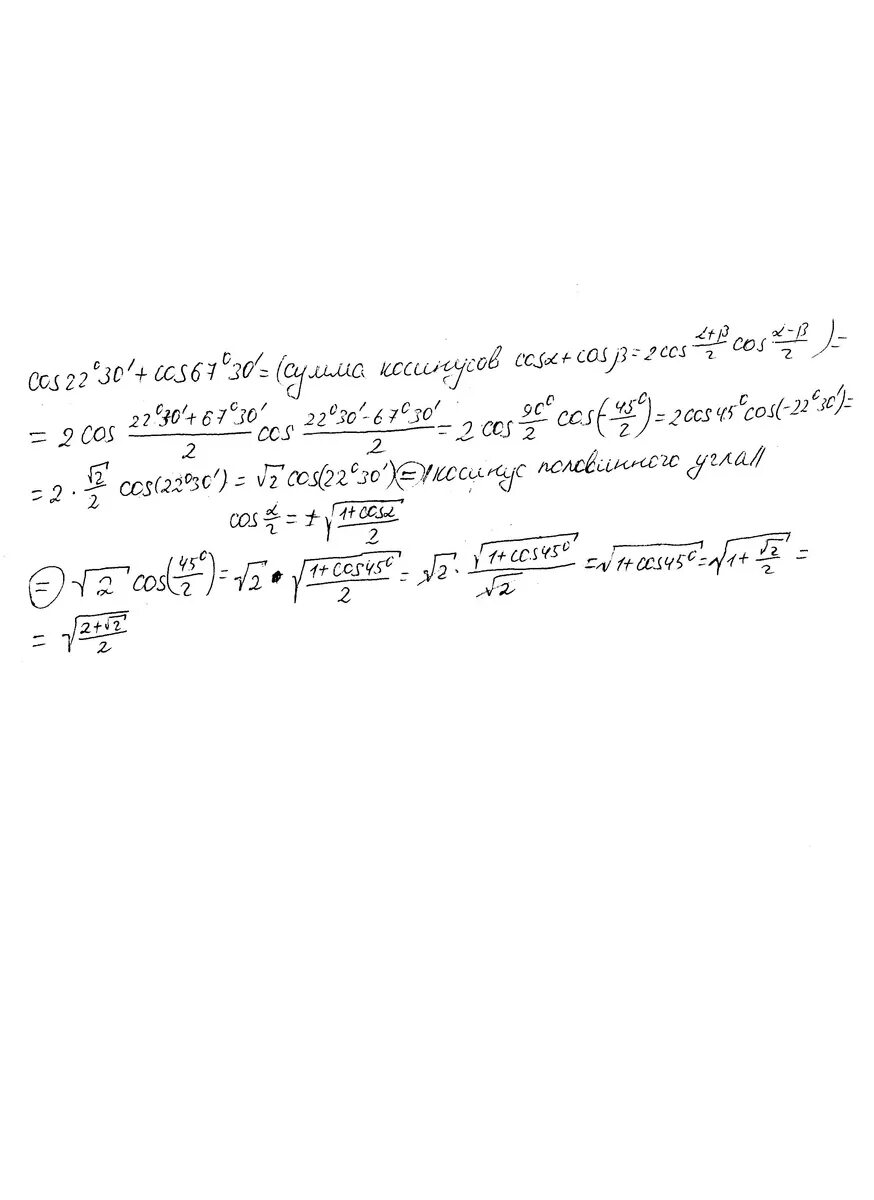 cos22°30′+cos67°30′=(сумма косинусов cosα+cosβ=2cos (α+β)/2 cos (α-β)/2)=
=2cos (22°30′+67°30′)/2 cos (22°30′-67°30′)/2=2cos 90°/2 cos(-45°/2)=2cos45°cos(-22°30′)=
=2·√2/2 cos(22°30′)=√2cos(22°30′)=//косинус половинного угла//
cos α/2=±√((1+cosα)/2)
=√2cos(45°/2)=√2·√((1+cos45°)/2)=√2·√(1+cos45°)/√2=√(1+cos45°)=√(1+√2/2)=
=√((2+√2)/2)